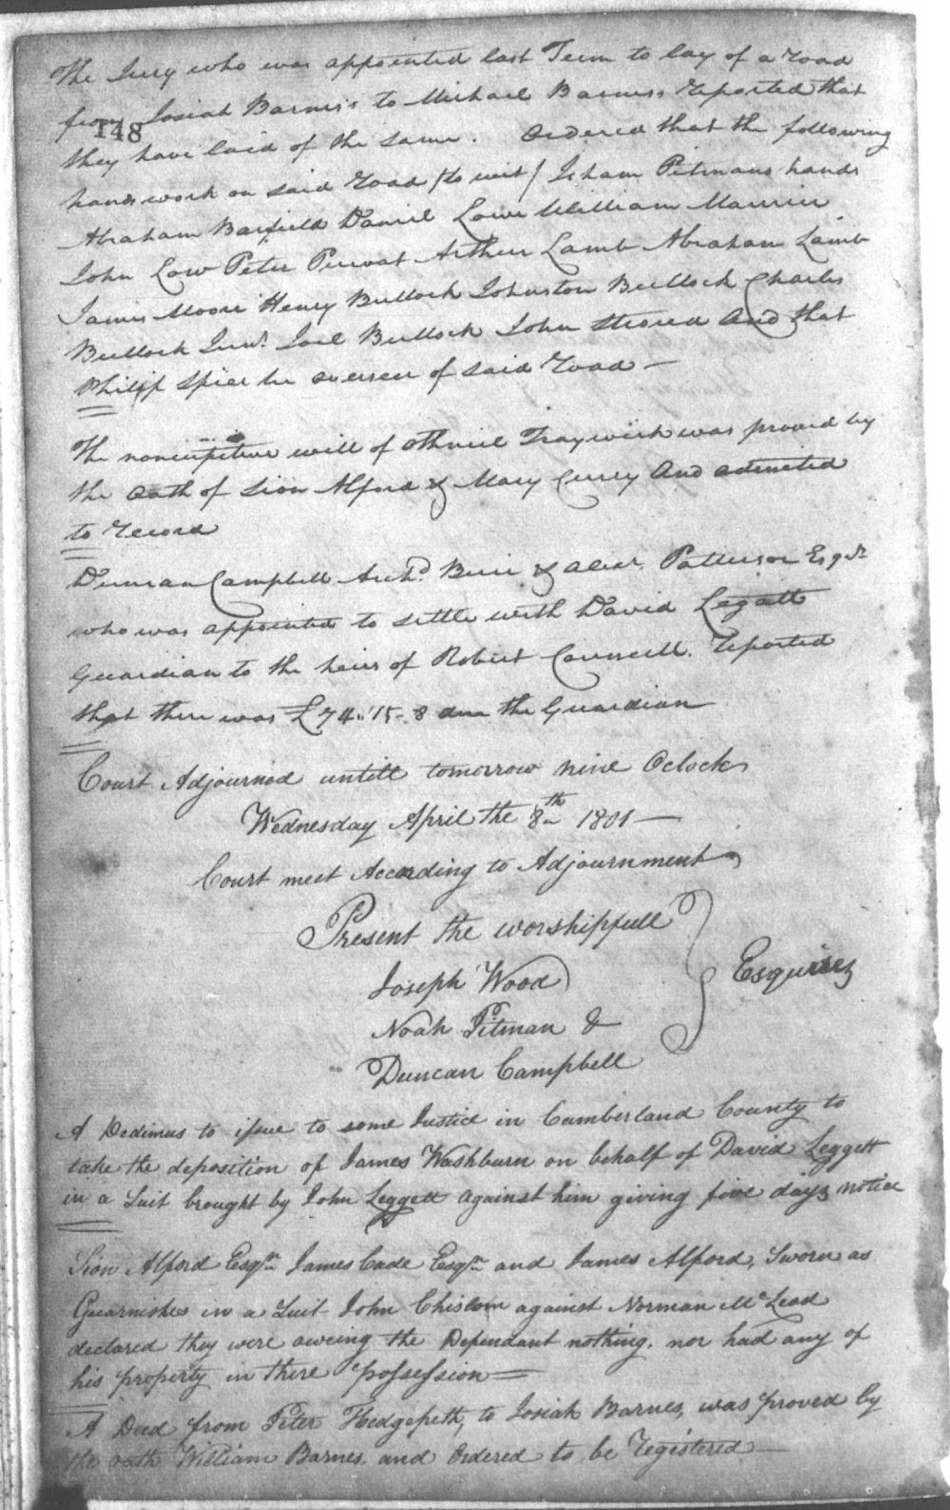 The Jury who was appointed last Term to lay of a road
from Josiah Barnes's to Michael Barness reported that
148
they have laid of the same. Ordered that the following
hands work on said road /to wit/ Isham Pitmans hands
Abraham Barfield Daniel Lowe William
John Low Peter Arthur Lamb Abraham Lamb
James Moore Henry Bullock Johnston Bullock Charles
Bullock Junr. Joel Bullock John And that
Philip Spier be overseer of said road —
The noncupative will of Othniel Traywick was proved by
the Oath of Sion Alford & Mary Curry And admited
to record
Duncan Campbell Archd. & Alexr. Patterson Esqrs
who was appointed to settle with David Legatt
Guardian to the heirs of Robert Council. reported
that there was £74..15-8 due the Guardian
Court Adjourned untill tomorrow nine Oclock
Wednesday April the 8th 1801 —
Court meet According to Adjournment
Present the worshipfull
Joseph Wood
Esquires
Noah Pitman &
Duncan Campbell
A Dedimus to issue to some Justice in Cumberland County to
take the deposition of James Washburn on behalf of David Leggett
in a Suit brought by John Leggett against him giving five days notice
Sion Alford Esqr. James Cade Esqr. and James Alford, Sworn as
Guarnishes in a Suit John Chisolm against Norman McLeod
declared they were oweing the Dependant nothing. nor had any of
his property in there possession =
A Deed from Peter Hedgepeth, to Josiah Barnes, was proved by
the oath William Barnes. and Ordered to be Registered —